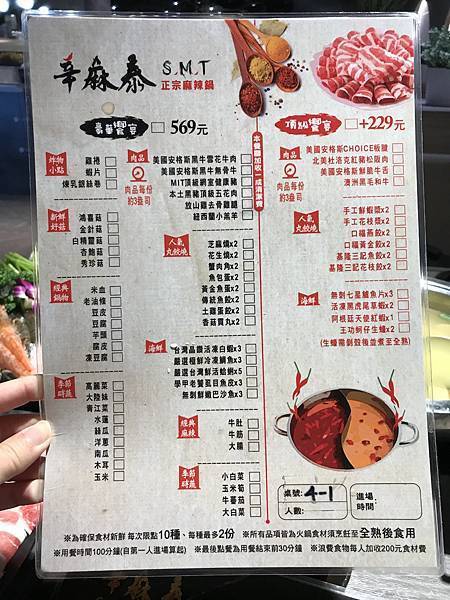 辛麻泰
S.M.T
正宗麻辣鍋
豪華饗宴 569元
炸物小點
雞捲
蝦片
煉乳銀絲卷
新鮮好菇
鴻喜菇
金針菇
白精靈菇
杏鮑菇
秀珍菇
經典鍋物
米血
老油條
豆皮
豆腐
芋頭
腐皮
凍豆腐
季節時蔬
高麗菜
大陸妹
青江菜
水蓮
絲瓜
洋蔥
南瓜
木耳
玉米
肉品
肉品每份約3盎司
美國安格斯黑牛雪花牛肉
美國安格斯黑牛無骨牛
MIT頂級網室健康豬
本土黑豬頂級五花肉
放山雞去骨雞腿
紐西蘭小羔羊
人氣丸餃燒
芝麻燒x2
花生燒x2
蟹肉角x2
魚包蛋x2
黃金魚蛋x2
傳統魚餃x2
土雞蛋餃x2
香菇貢丸x2
海鮮
台灣晶鑽活凍白蝦x3
嚴選極鮮冷凍鯛魚x3
嚴選台灣鮮活蛤蜊x5
學甲老饕虱目魚皮x3
無刺鮮嫩巴沙魚x3
經典麻辣
牛肚
牛筋
大腸
季節時蔬
小白菜
玉米筍
牛蕃茄
大白菜
本餐廳加收一成清潔費
頂級饗宴 +229元
肉品
肉品每份約3盎司
美國安格斯CHOICE板腱
北美杜洛克紅豬松阪肉
美國安格斯鮮脆牛舌
澳洲黑毛和牛
人氣丸餃燒
手工鮮蝦漿x2
手工花枝漿x2
口福燕餃x2
口福黃金餃x2
基隆三記魚餃x2
基隆三記花枝餃x2
海鮮
無刺七星鱸魚片x3
活凍黑虎尾草蝦x2
阿根廷天使紅蝦x1
王功蚵仔生蠔x2
(生蠔需剝殼後並煮至全熟)
桌號: 4-1
人數:
進場時間:
※為確保食材新鮮 每次限點10種、每種最多2份 ※所有品項皆為火鍋食材須烹飪至全熟後食用
※用餐時間100分鐘(自第一人進場算起) ※最後點餐為用餐結束前30分鐘 ※浪費食物每人加收200元食材費